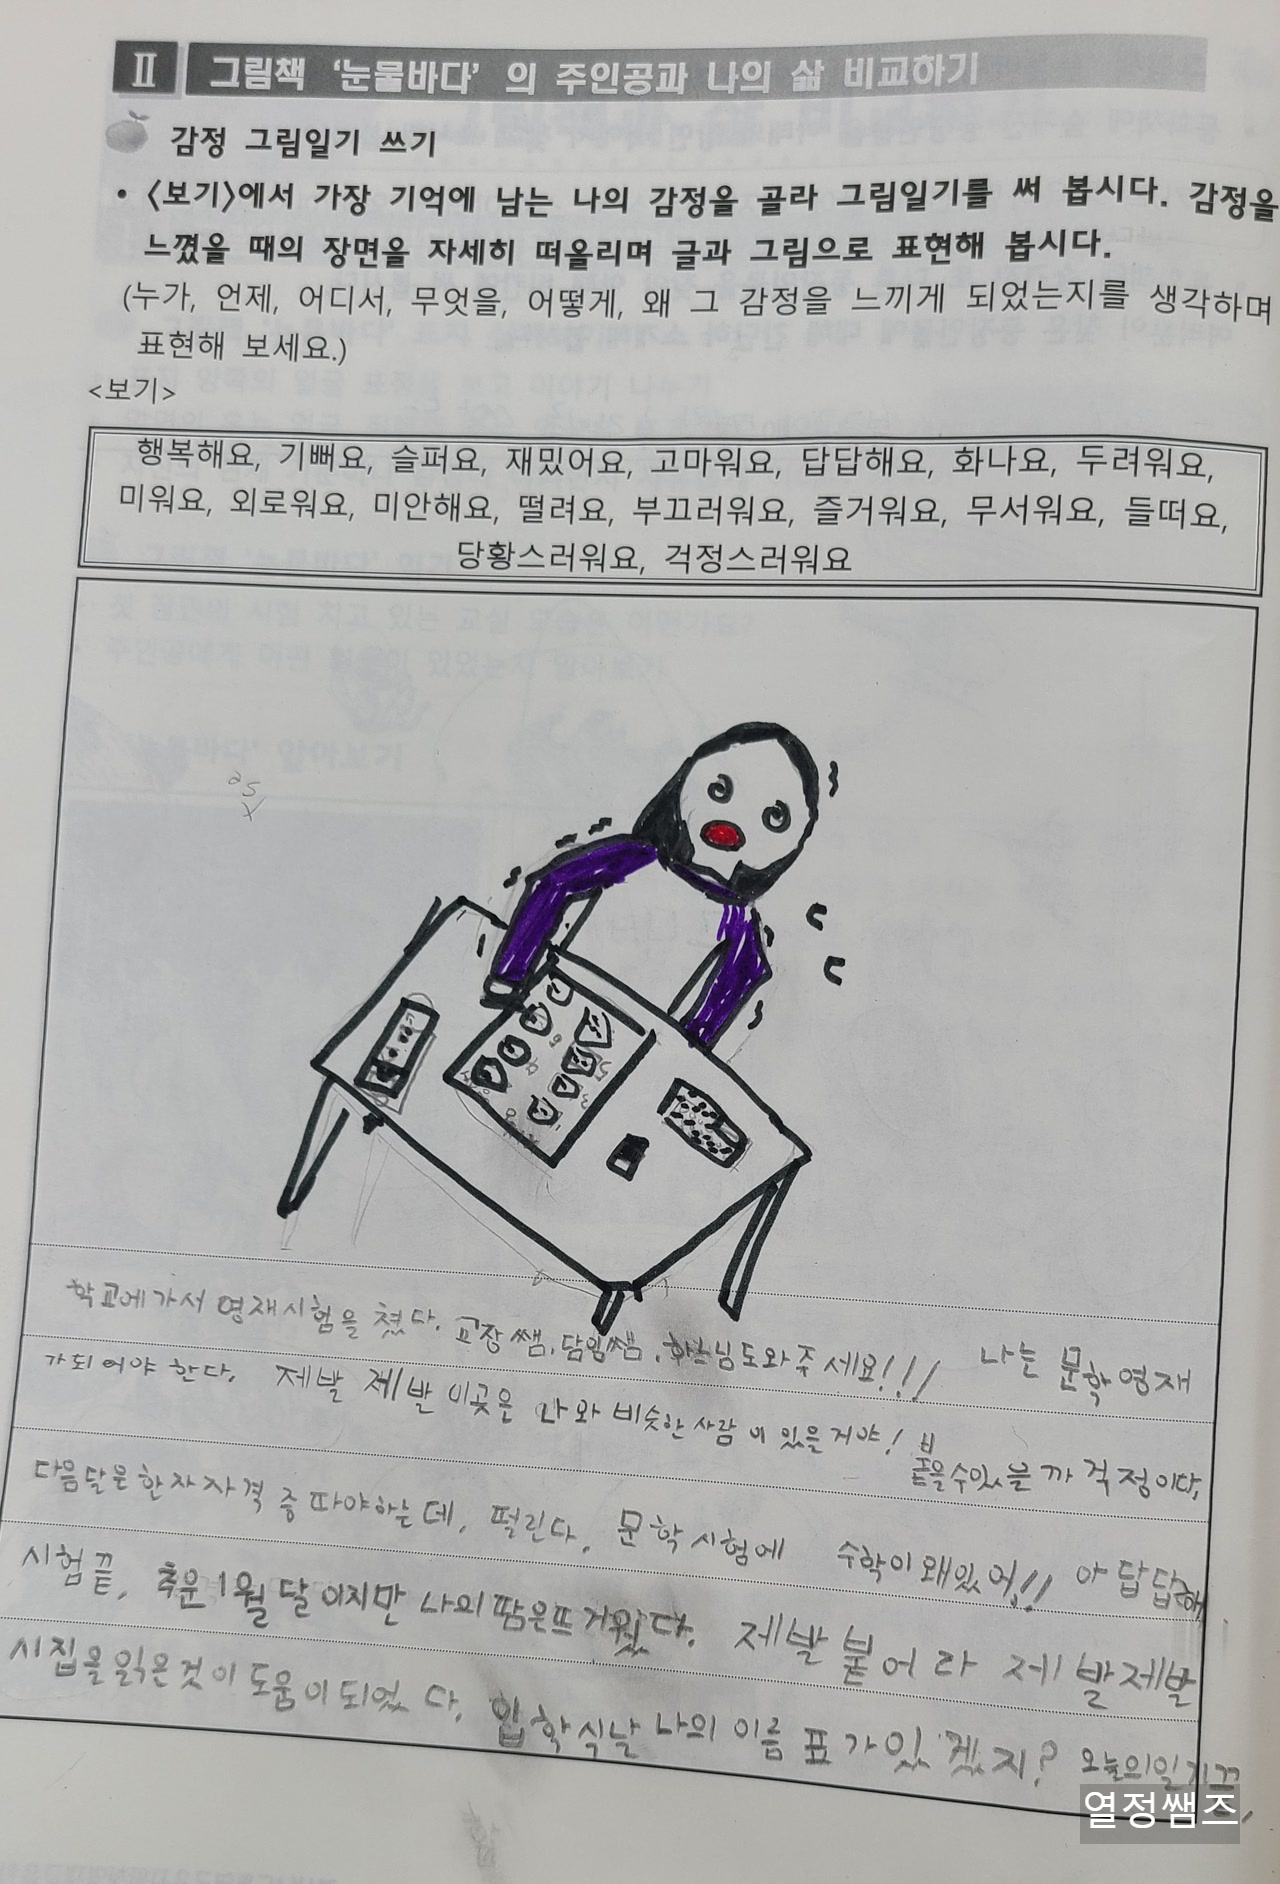 Ⅱ 그림책 '눈물바다' 의 주인공과 나의 삶 비교하기
감정 그림일기 쓰기
• <보기>에서 가장 기억에 남는 나의 감정을 골라 그림일기를 써 봅시다. 감정을
느꼈을 때의 장면을 자세히 떠올리며 글과 그림으로 표현해 봅시다.
(누가, 언제, 어디서, 무엇을, 어떻게, 왜 그 감정을 느끼게 되었는지를 생각하며
표현해 보세요.)
<보기>
행복해요, 기뻐요, 슬퍼요, 재밌어요, 고마워요, 답답해요, 화나요, 두려워요,
미워요, 외로워요, 미안해요, 떨려요, 부끄러워요, 즐거워요, 무서워요, 들떠요,
당황스러워요, 걱정스러워요
학교에가서 영재시험을 쳤다. 교장쌤, 담임쌤, 하느님도와주세요!!! 나는 문학영재
가되어야 한다. 제발 제발 이곳은 나와 비슷한 사람이 있을거야!
풀을수있을까 걱정이다,
다음달은한자자격증따야하는데, 떨린다. 문학시험에 수학이왜있어!! 아 답답해
시험끝, 추운1월달이지만 나의땀은뜨거웠다. 제발 붙어라 제발제발
시집을읽은것이 도움이되었다. 입학식날 나의 이름표가있겠지? 오늘의일기끝,
열정쌤즈